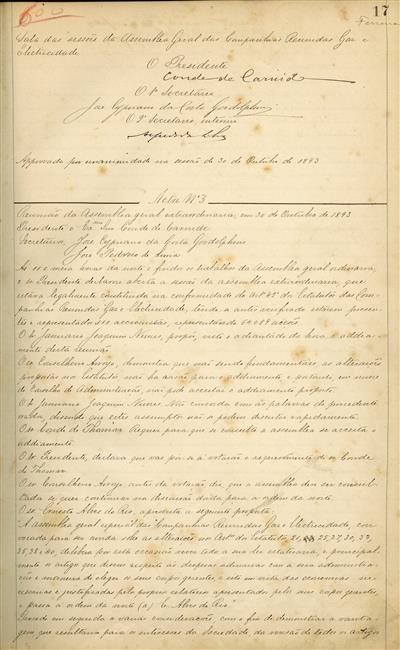 600
17
Ferreira
Sala das sessões da Assemblea Geral das Companhias Reunidas Gaz e
Electricidade
O Presidente
Conde de Carnide
O 1º Secretario
José Cypriano da Costa Goodolphim
O 2º Secretario interino
Approvada por unanimidade na sessão de 30 de Outubro de 1893
Acta Nº 3
Reunião da Assemblea geral extraordinaria, em 30 de Outubro de 1893
Presidente o Exmo Snr Conde de Carnide
Secretarios, José Cypriano da Costa Goodolphim
José Pedroso de Lima
As 10 e meia horas da noite e findos os trabalhos da Assemblea geral ordinaria,
o sr Presidente declarou aberta a sessão da assemblea extraordinaria, que
estava legalmente constituida na conformidade do artº 45 dos Estatutos das Com-
panhias Reunidas Gaz e Electricidade, tendo a antes verificado estarem presen-
tes e representados accionistas, representando acções.
O sr Januario Joaquim Nunes, propoz, visto o adiantado da hora, o addia-
mento desta reunião.
O sr Conselheiro Arroyo, demonstra que não sendo fundamentaes as alterações
propostas nos Estatutos não ha razão para o addiamento e portanto em nome
do Conselho de Administração, não pode acceitar o addiamento proposto.
O sr Januario Joaquim Nunes. Não concorda com as palavras do precedente
orador, dizendo que estes assumptos não se podem discutir rapidamente.
O sr Conde de Thomar Requer para que se consulte a assemblea se acceita o
addiamento.
O sr Presidente, declara que vae por-se á votação o requerimento do sr Conde
de Thomar
O sr Conselheiro Arroyo antes da votação diz que a assemblea deve ser consul-
tada se quer continuar na discussão dada para a ordem da noite.
O sr Ernesto Alves do Rio, apresenta a seguinte proposta:
A assemblea geral especial das Companhias Reunidas Gaz e Electricidade, con-
vocada para ser ouvida sobre as alterações nos Artos dos Estatutos 25, 27, 30, 33,
35, 38 e 40, delibera por esta occasião rever toda a sua lei estatuaria, e principal-
mente os artigos que dizem respeito ás despezas advindas com a sua administra-
ção e maneira de eleger os seus corpos gerentes, e isto em vista das economias ne-
cessarias e justificadas pelo proprio relatorio apresentado pelos seus corpos gerentes,
e passa á ordem da noite (a) E. Alves do Rio.
Fazendo em seguida varias considerações com o fim de demonstrar a vanta-
gem que resultaria para os interesses da Sociedade da revisão de todos os artigos